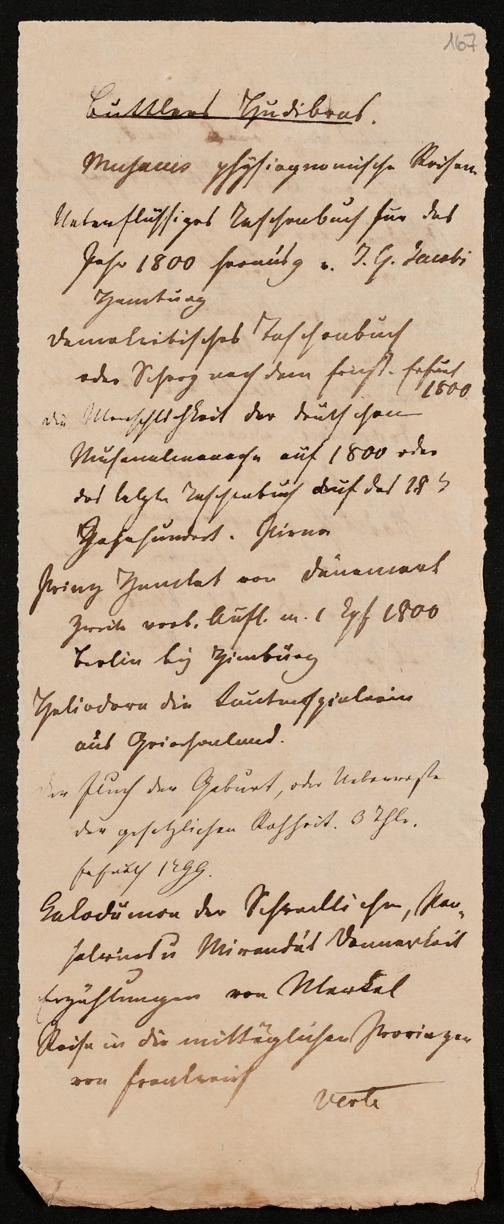 167
Buttlers Hudibras.
Musaeus physiognomische Reisen
Ueberflüssiges Taschenbuch für das
Jahr 1800 herausg v. J. G. Jacobi
Hamburg
Demokritisches Taschenbuch
oder Scherz nach dem Erfurt
1800
die der deutschen
Musenalmanache auf 1800 oder
das letzte Taschenbuch auf das 18
Jahrhundert. Pirna
Prinz Hamlet von Dänemark
zweite verb. Aufl. m. 1 Kpf 1800
Berlin bey Himburg
Heliodora die Lautenspielerin
aus Griechenland.
der Fluch der Geburt, oder Ueberreste
der gesetzlichen Rohheit. 3 Thlr.
Erfurth 1799.
der Schreckliche,
Miranda's
Erzählungen von Merkel
Reise in die mittäglichen Provinzen
von Frankreich